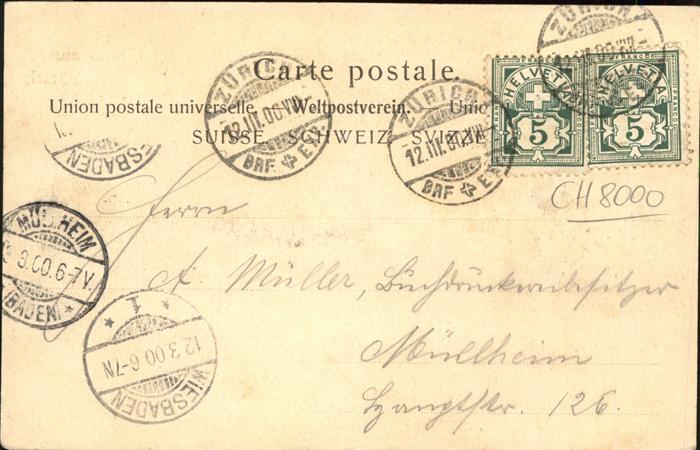 Carte postale.
Union postale universelle. Weltpostverein. Unio
SUISSE SCHWEIZ SVIZ
ZÜRICH
12.III.00.VIII
BRF. EXP.
ZÜRICH
12.III.00.VIII
BRF. EXP.
ZÜRICH
HELVETIA
5
FRANCO
HELVETIA
5
FRANCO
CH 8000
WIESBADEN
MÜLLHEIM
3.00.6-7V.
(BADEN)
1
12.3.00.6-7N
WIESBADEN
Herrn
A. Müller, Buchdruckereibesitzer
Müllheim
Hauptstr. 126.